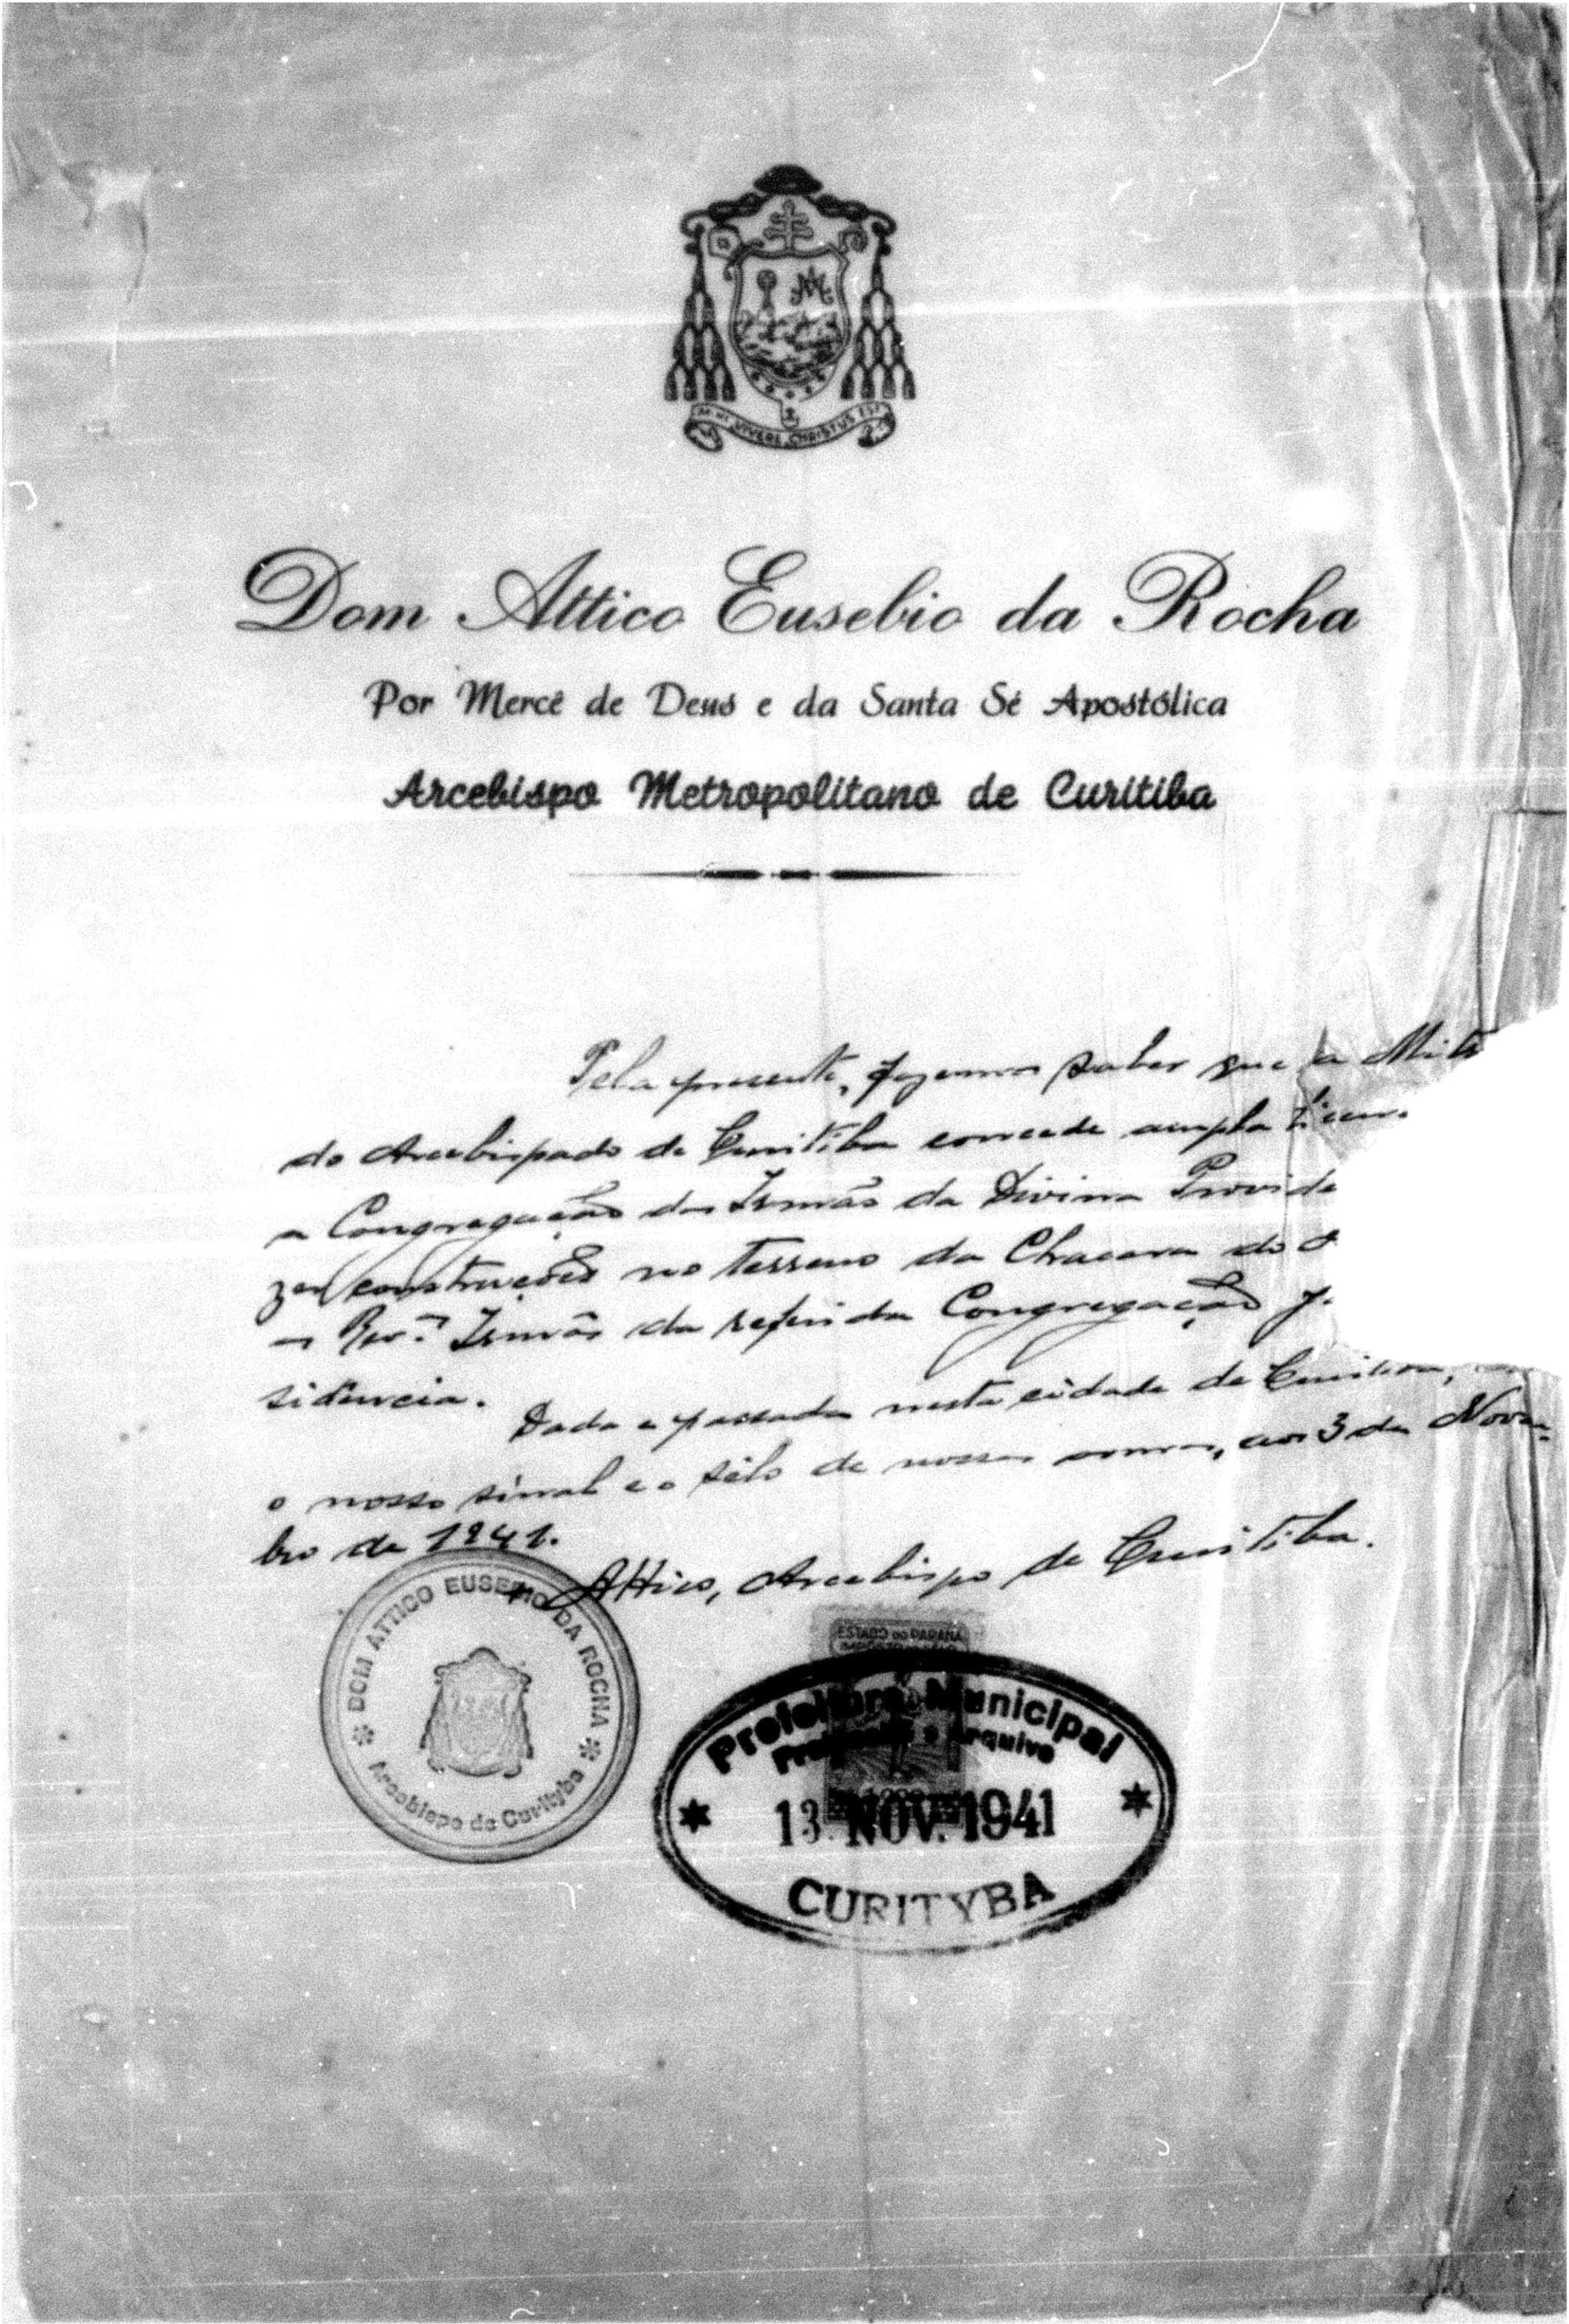 VIVERE CHRISTUS EST
Dom Attico Eusebio da Rocha
Por Mercê de Deus e da Santa Sé Apostólica
Arcebispo Metropolitano de Curitiba
Pela presente, fazemos saber que a Mit
do Arcebispado de Curitiba concede ampla licen
a Congregação das Irmãs da Divina Provide
zer construções no terreno da Chacara do
as Rev.as Irmãs da referida Congregação
sidencia.
Dada e passada nesta cidade de Curitiba,
o nosso sinal e o sêlo de nossas armas, aos 3 de Novem-
bro de 1941.
Attico, Arcebispo de Curitiba.
DOM ATTICO EUSEBIO DA ROCHA
Arcebispo de Curityba
ESTADO DO PARANÁ
Prefeitura Municipal
Protocollo e Arquivo
13 NOV. 1941
CURITYBA